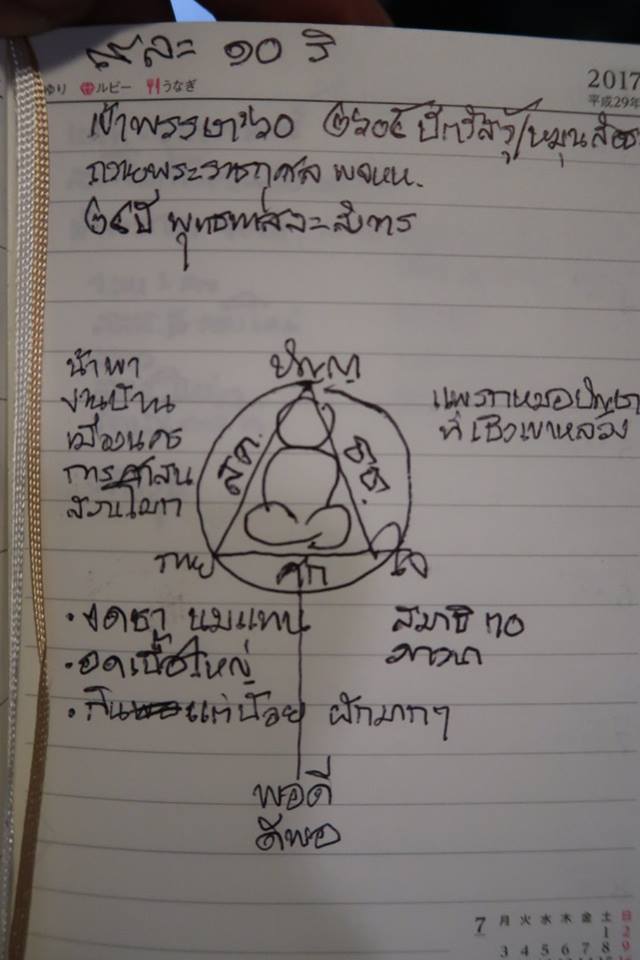 สละ ๑๐ วิ
ゆり ルビー うなぎ
2017
平成29年
เข้าพรรษา'๖๐ ๒๖๐๕ ปีตรัสรู้/หมุน
ถวายพระราชกุศล
๒๕ปี พุทธทาสละสังขาร
น้ำพา
งานบ้าน
เมืองนคร
การศาสน
สวนโมกข์
ปัญญา
แพรกหมอปัญญา
ที่เชิงเขาหลวง
สต.
ธช.
กาย
ศีล
ใจ
• งดชา นมแทน
สมาธิ
• งดเนื้อใหญ่
ภาวนา
• กินแต่น้อย ผักมากๆ
พอดี
ดีพอ
7 月 火 水 木 金 土 日
1 2
3 4 5 6 7 8 9